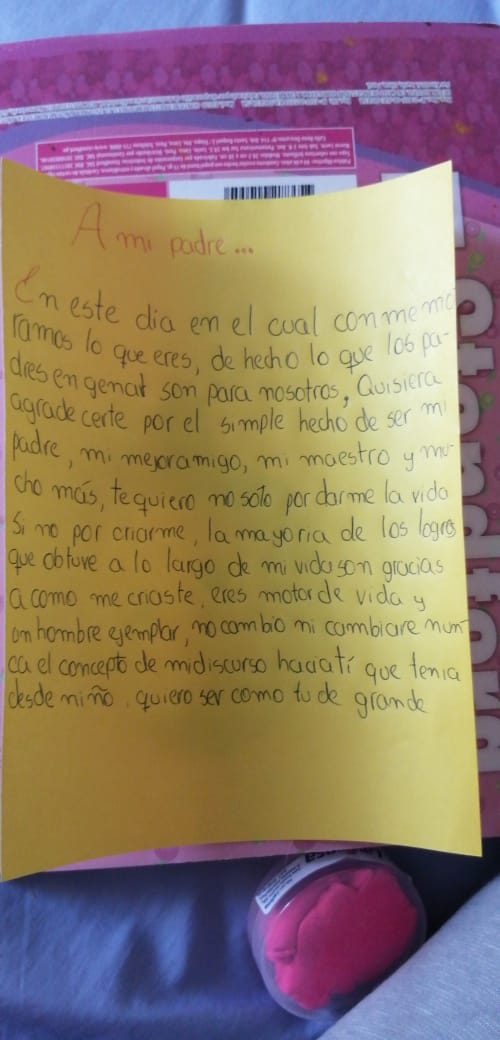 A mi padre...
En este día en el cual conmemo
ramos lo que eres, de hecho lo que los pa-
dres en genaral son para nosotros, Quisiera
agradecerte por el simple hecho de ser mi
padre, mi mejor amigo, mi maestro y mu-
cho más, te quiero no solo por darme la vida
Si no por criarme, la mayoria de los logros
que obtuve a lo largo de mi vida son gracias
a como me criaste, eres motor de vida y
un hombre ejemplar, no cambio ni cambiare nun
ca el concepto de mi discurso hacia tí que tenia
desde niño, quiero ser como tu de grande